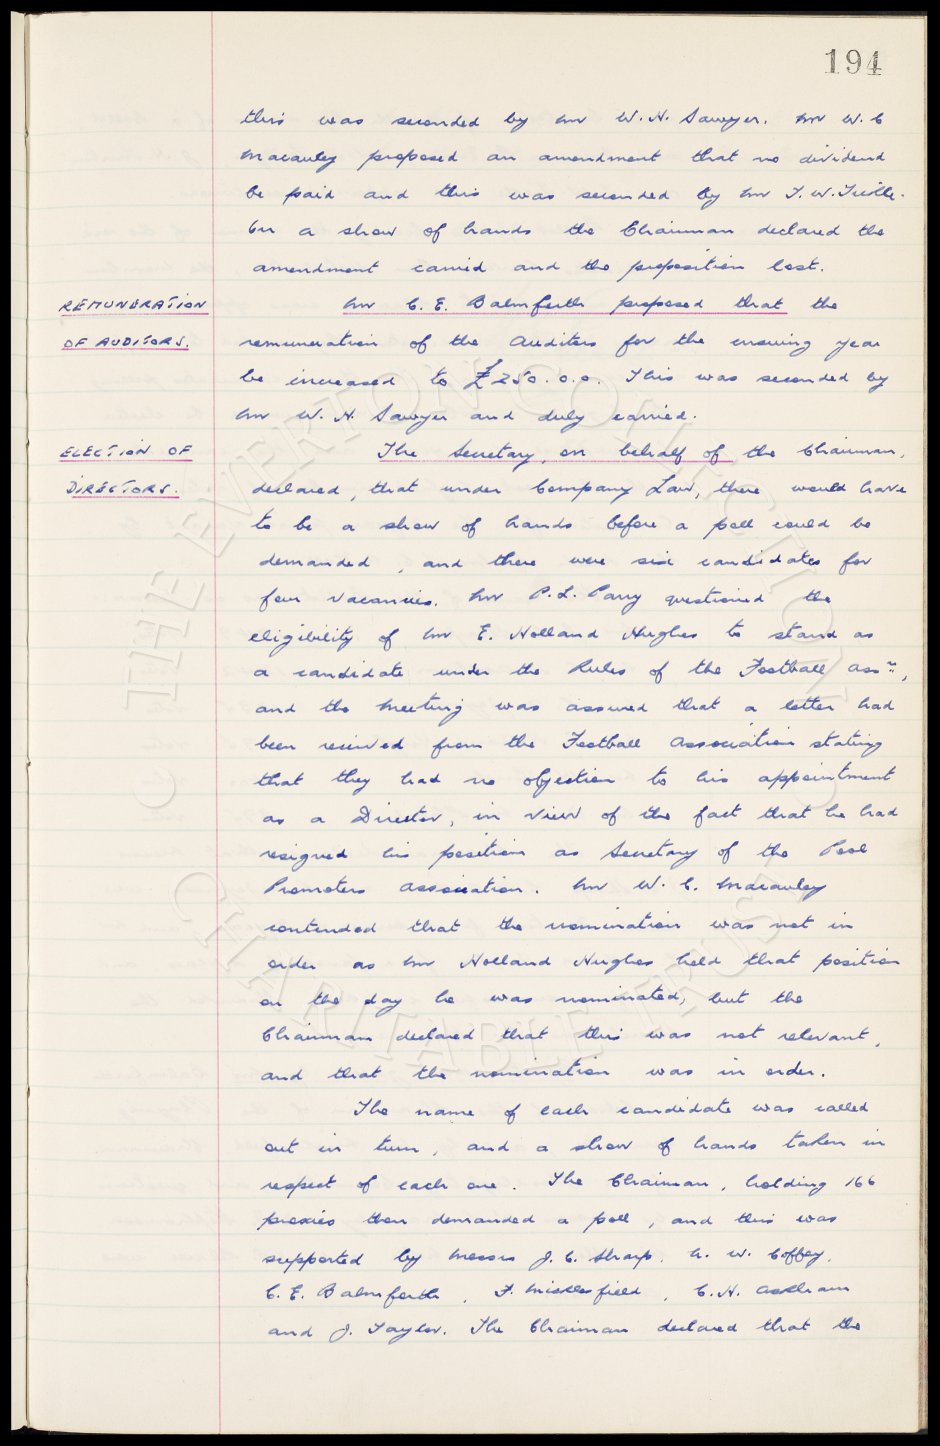 194
this was seconded by Mr W. H. Sawyer. Mr W. C
Macauley proposed an amendment that no dividend
be paid and this was seconded by Mr T. W.
On a show of hands the Chairman declared the
amendment carried and the proposition lost.
REMUNERATION Mr C. E. Balmforth proposed that the
OF AUDITORS. remuneration of the Auditors for the ensuing year
be increased to £250.0.0. This was seconded by
Mr W. H. Sawyer and duly carried.
ELECTION OF The Secretary, on behalf of the Chairman,
DIRECTORS. declared, that under Company Law, there would have
to be a show of hands before a poll could be
demanded, and there were six candidates for
four vacancies. Mr P. L. Parry questioned the
eligibility of Mr E. Holland Hughes to stand as
a candidate under the Rules of the Football Assn.,
and the meeting was assured that a letter had
been received from the Football Association stating
that they had no objection to his appointment
as a Director, in view of the fact that he had
resigned his position as Secretary of the Pool
Promoters Association. Mr W. C. Macauley
contended that the nomination was not in
order as Mr Holland Hughes held that position
on the day he was nominated, but the
Chairman declared that this was not relevant,
and that the nomination was in order.
The name of each candidate was called
out in turn, and a show of hands taken in
respect of each one. The Chairman, holding 166
proxies then demanded a poll, and this was
supported by Messrs J. C. Sharp, A. W. Coffey,
C. E. Balmforth, F. Micklesfield, C. H. Askham
and J. Taylor. The Chairman declared that the
© THE EVERTON COLLECTION
CHARITABLE TRUST